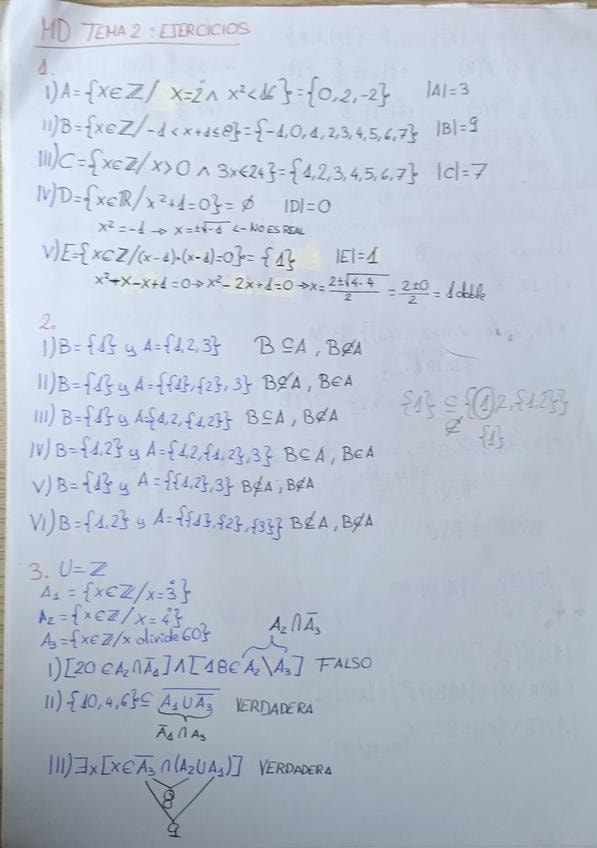 MD TEMA 2: EJERCICIOS
1.
I) A = {x∈ℤ / x=2̊ ∧ x²<16} = {0,2,-2} |A|=3
II) B = {x∈ℤ / -1<x+1≤8} = {-1,0,1,2,3,4,5,6,7} |B|=9
III) C = {x∈ℤ / x>0 ∧ 3x≤24} = {1,2,3,4,5,6,7} |C|=7
IV) D = {x∈ℝ / x²+1=0} = ∅ |D|=0
x²=-1 → x=±√-1 ← NO ES REAL
V) E = {x∈ℤ / (x-1)·(x-1)=0} = {1} |E|=1
x²-x-x+1=0 → x²-2x+1=0 → x = (2±√4-4)/2 = (2±0)/2 = 1 doble
2.
I) B={1} y A={1,2,3} B⊆A, B∉A
II) B={1} y A={{1},{2},3} B⊈A, B∈A
III) B={1} y A{1,2,{1,2}} B⊆A, B∉A
{1} ⊆ {1,2,{1,2}}
∉ {1}
IV) B={1,2} y A={1,2,{1,2},3} B⊆A, B∈A
V) B={1} y A={{1,2},3} B⊈A, B∉A
VI) B={1,2} y A={{1},{2},{3}} B⊈A, B∉A
3. U=ℤ
A₁ = {x∈ℤ / x=3̊}
A₂ = {x∈ℤ / x=4̊}
A₃ = {x∈ℤ / x divide 60}
A₂∩A̅₃
I) [20∈A₂∩A̅₁]∧[18∈A₂\A₃] FALSO
II) {10,4,6}⊆ A̅₁̅ ̅∪̅ ̅A̅₃ VERDADERA
A̅₁∩A₃
III) ∃x[x∈A̅₃∩(A₂∪A₁)] VERDADERA
8
9